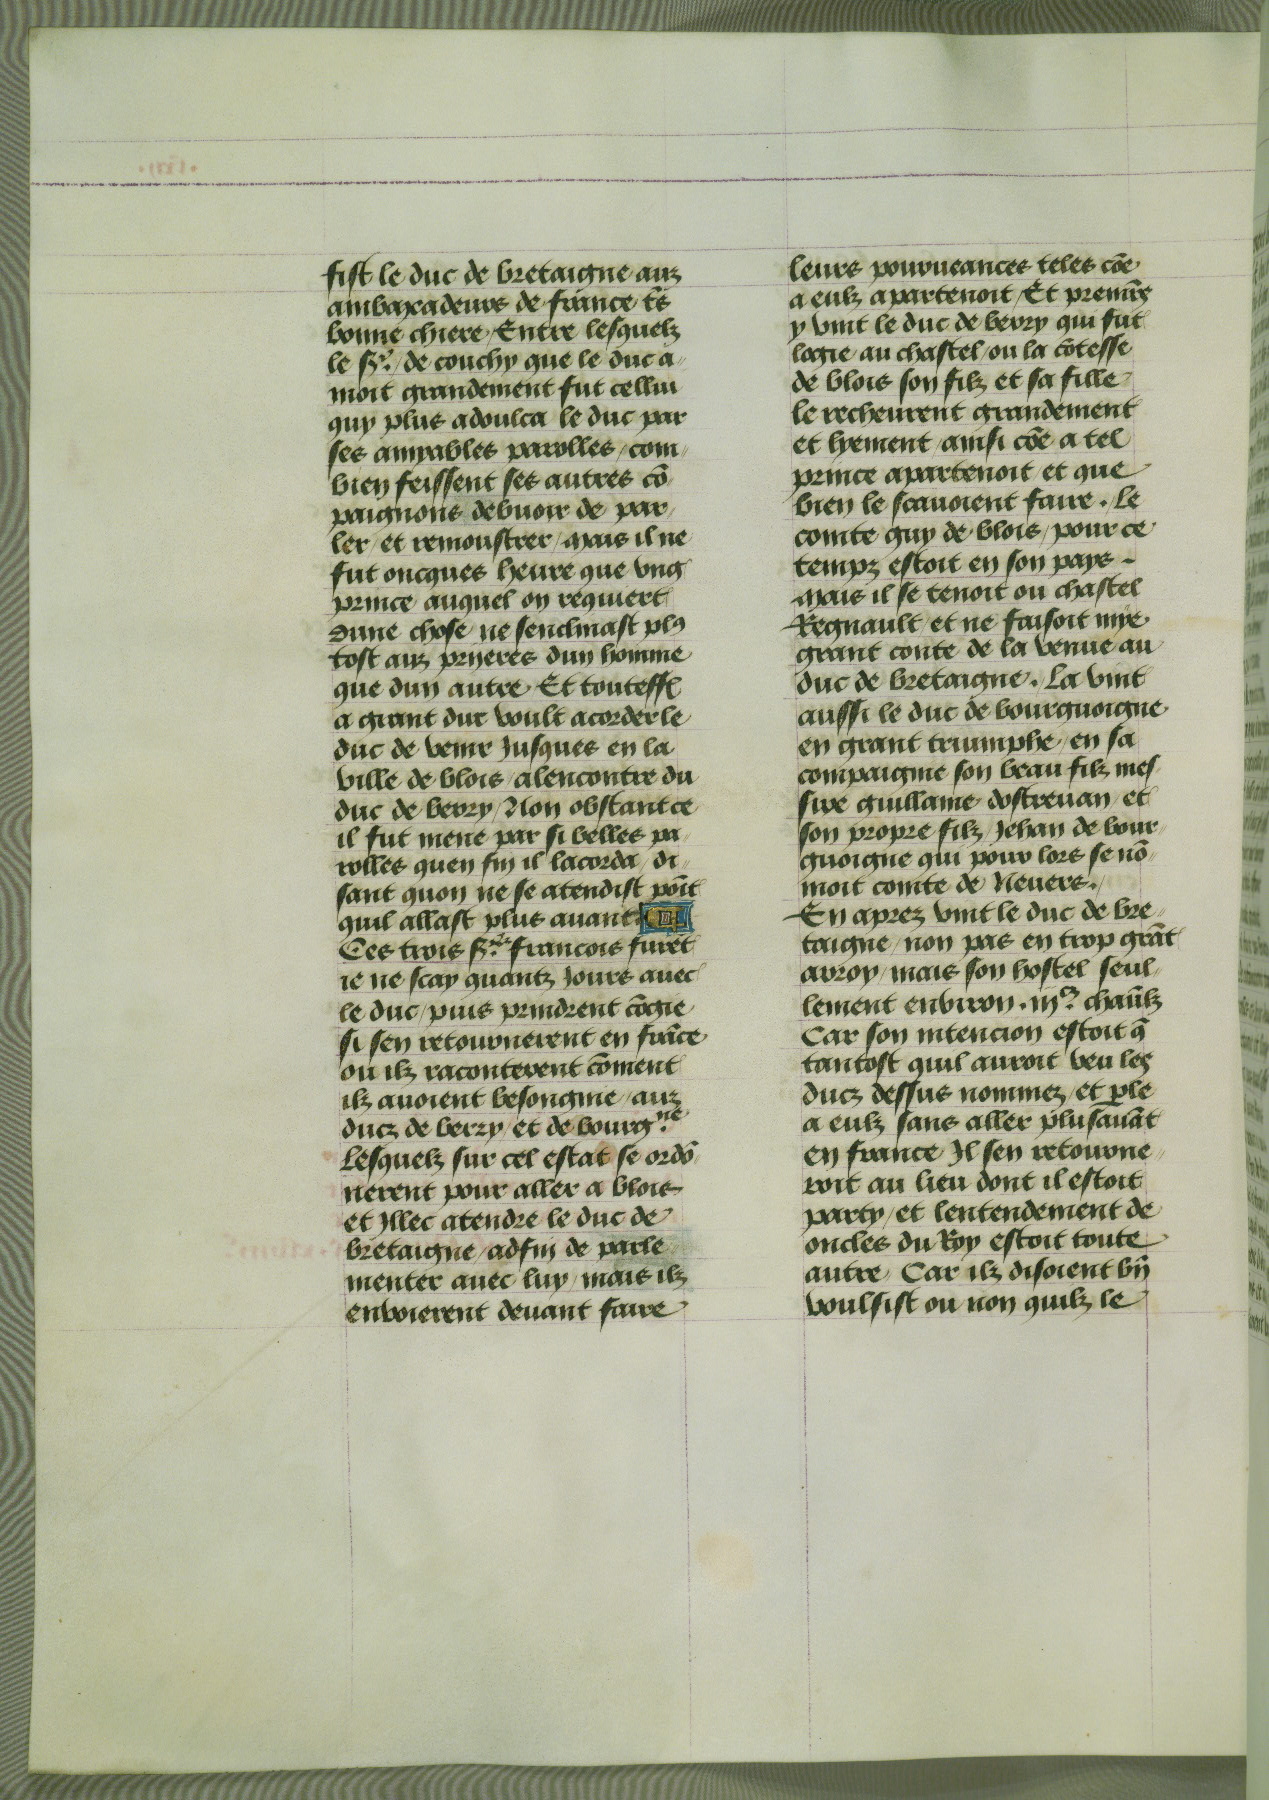 fist le duc de bretaigne aux
ambaxadeurs de france t̃s
bonne chiere / Entre lesquelz
le s.r / de couchy que le duc a-
moit grandement fut cellui
quy plus adoulca le duc par
ses amyables parolles / com-
bien feissent ses autres cõ-
paignons debuoir de par-
ler / et remonstrer / mais il ne
fut oncques heure que vng
prince auquel on requiert
dune chose ne senclinast plꝯ
tost aux pryeres dun homme
que dun autre Et toutesff
a grant dur voult acorder le
duc de venir Jusques en la
ville de blois / alencontre du
duc de berry / Non obstant ce
il fut mene par si belles pa-
rolles quen fin il lacorda / di-
sant quon ne se atendist poĩt
quil allast plus auant
Ces trois s.rs francois furẽt
ie ne scay quantz Jours auec
le duc / puis prindrent cõgie
si sen retournerent en frãce
ou ilz raconterent cõment
ilz auoient besongnie / aux
ducz de berry / et de bourg.ne
Lesquelz sur cel estat se ordõ-
nerent pour aller a blois
et Jllec atendre le duc de
bretaigne / adfin de parle-
menter auec luy / mais ilz
enuoierent deuant faire
leurs pourueances teles cõe
a eulz apartenoit / Et premirẽ
y vint le duc de berry qui fut
logie au chastel / ou la cõtesse
de blois son filz et sa fille
le recheurent grandement
et lyement / ainsi cõe a tel
prince apartenoit et que
bien le scauoient faire . Le
comte guy de blois / pour ce
tempz estoit en son pays -
mais il se tenoit ou chastel
Regnault et ne faisoit mye
grant conte de la venue au
duc de bretaigne . La vint
aussi le duc de bourguoigne
en grant triumphe / en sa
compaignie son beau filz mes-
sire guillame dostreuan / et
son propre filz / Jehan de bour-
guoigne qui pour lors se nõ-
moit comte de Neuers .
En aprez vint le duc de bre-
taigne / non pas en trop grãt
arroy / mais son hostel seul-
lement enbiron . iijc. chaũlz
Car son intencion estoit q̃
tantost quil auroit veu les
ducz dessus nommez / et ꝑle
a eulz sans aller plusauãt
en france Jl sen retourne-
roit au lieu dont il estoit
party / et lentendement de
oncles du Roy estoit toute
autre / Car ilz disoient bñ
voulsist ou non quilz le